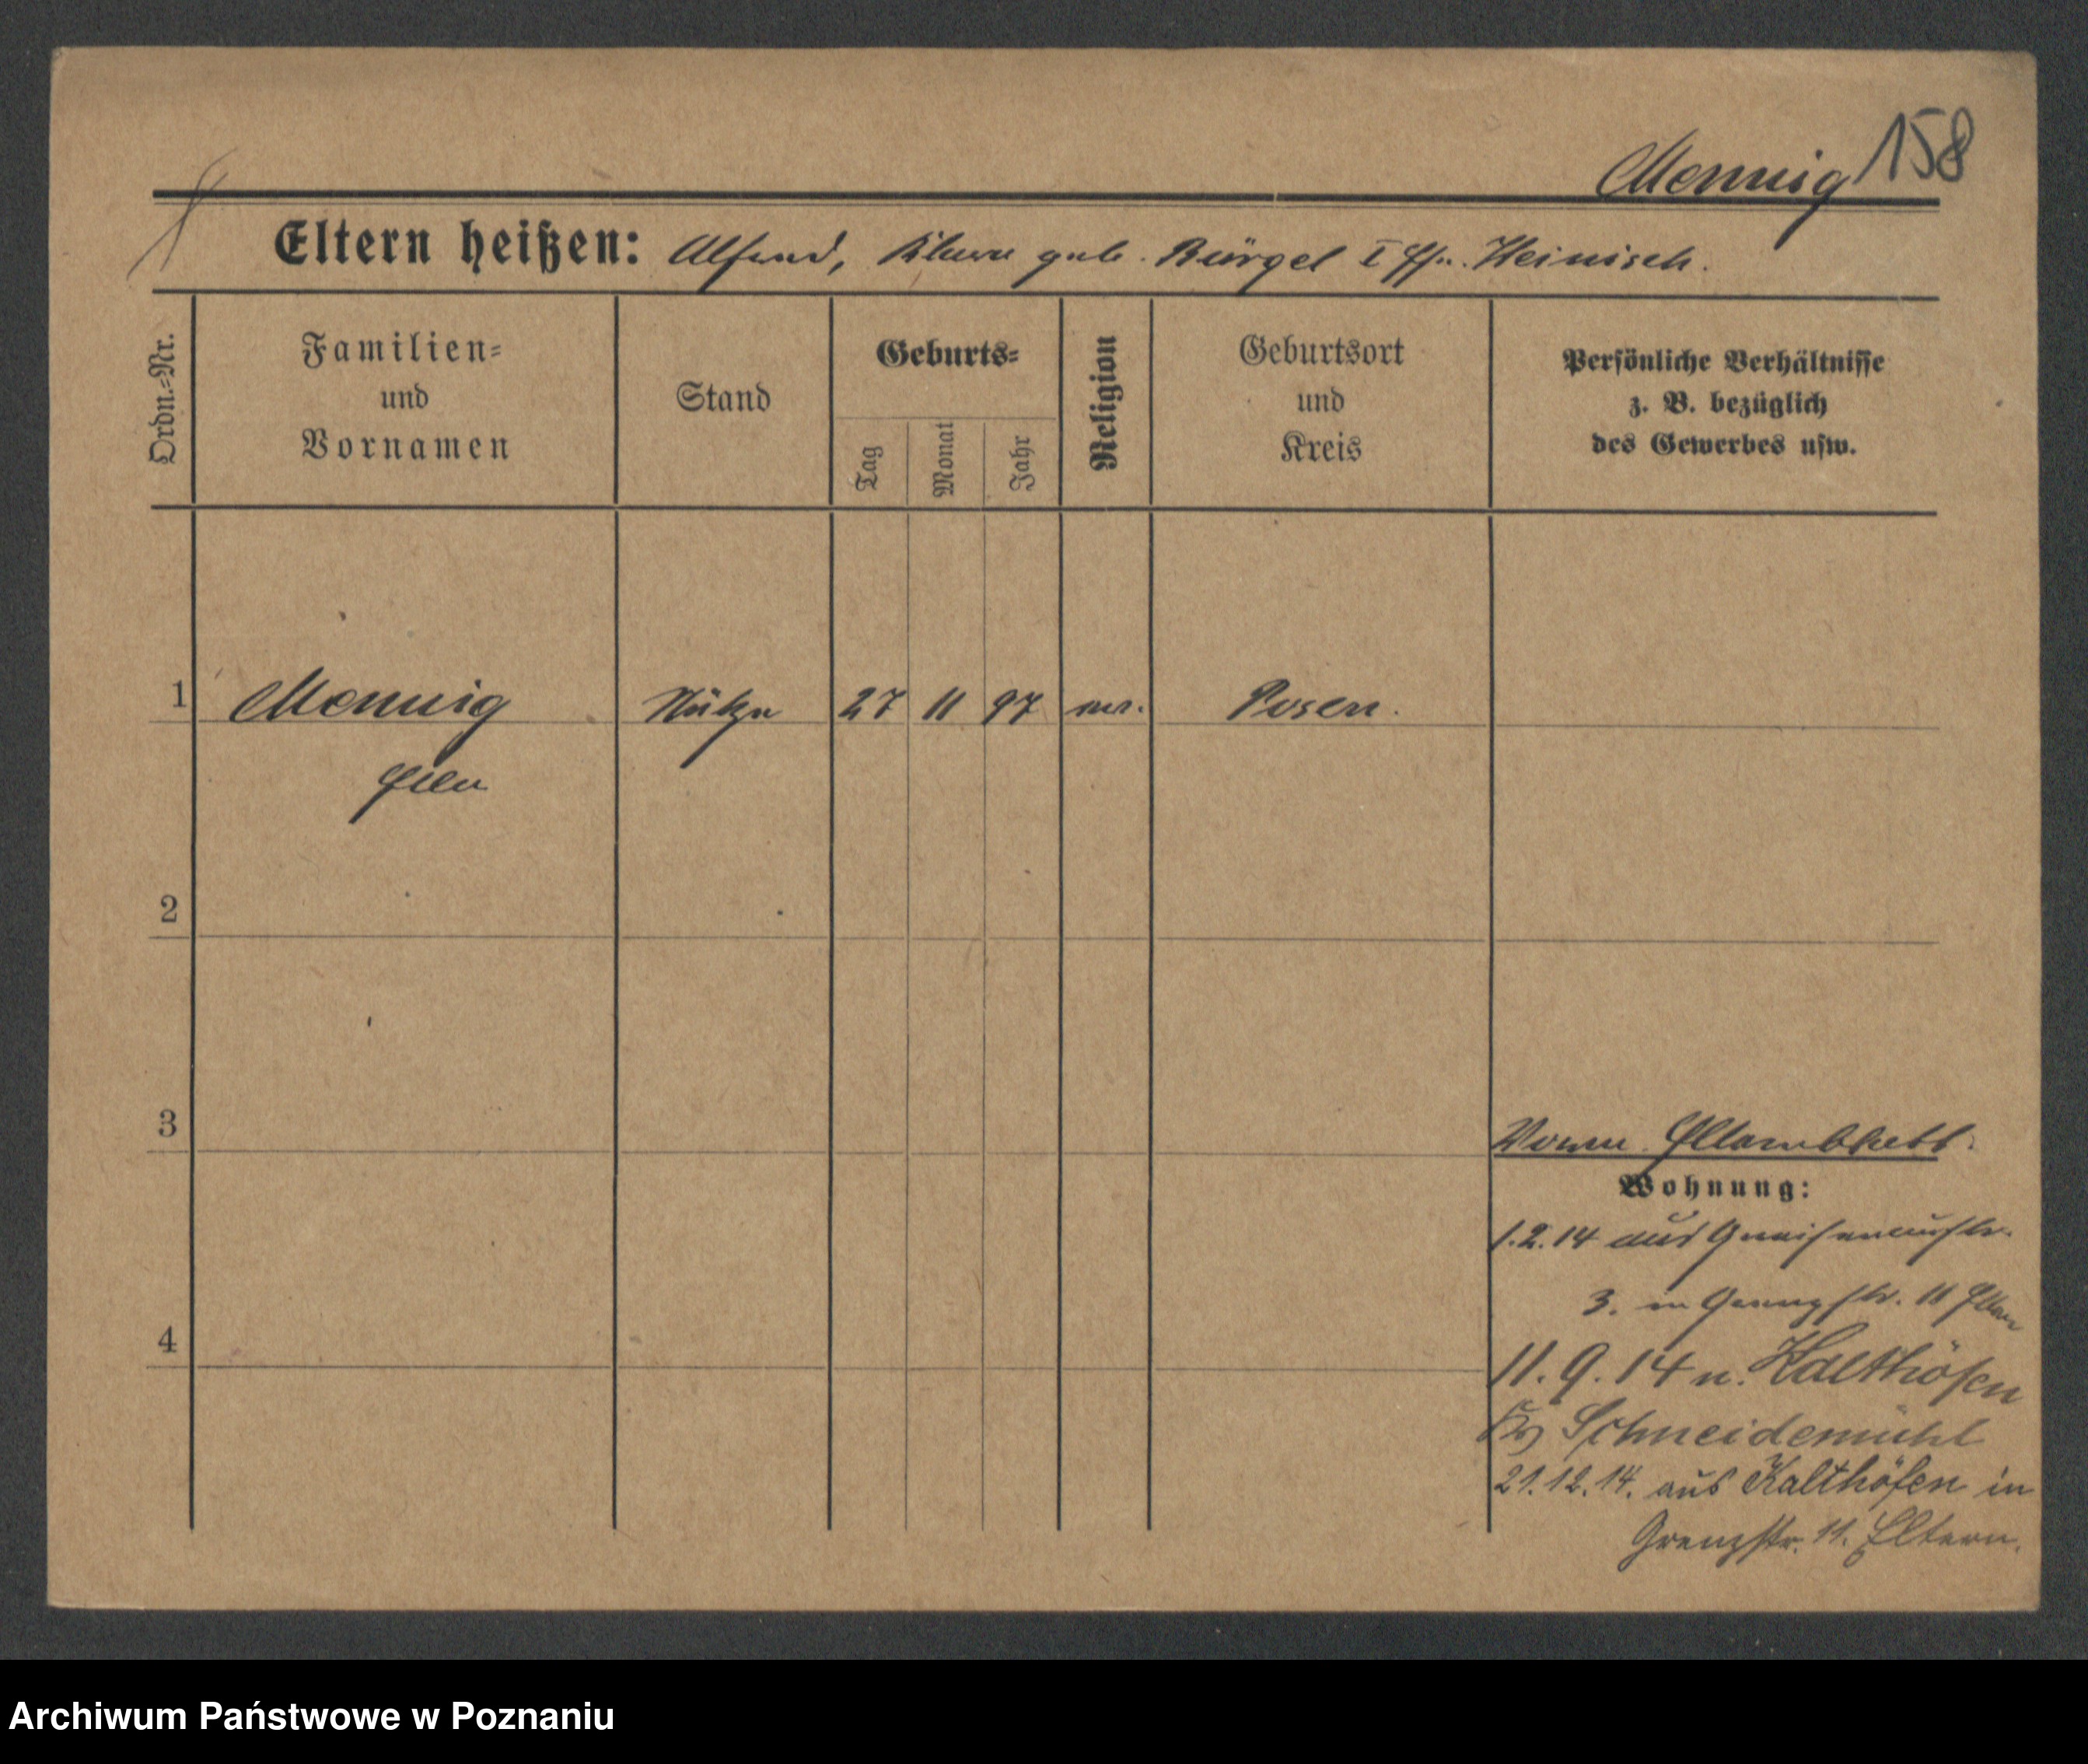 Mennig 158
Eltern heißen: Alfred, Klara geb. Bürgel I Eh. Heinisch.
Ordn.-Nr.
Familien-
und
Vornamen
Stand
Geburts-
Tag
Monat
Jahr
Religion
Geburtsort
und
Kreis
Persönliche Verhältnisse
z. B. bezüglich
des Gewerbes usw.
1 Mennig 27 11 97 Posen.
2
3
4
Wohnung:
1.2.14 aus Gneisenaustr.
3. in Grenzstr. 11 Eltern
11.9.14 n. Kalthöfen
Schneidemühl
21.12.14. aus Kalthöfen in
Grenzstr. 11. Eltern.
Archiwum Państwowe w Poznaniu